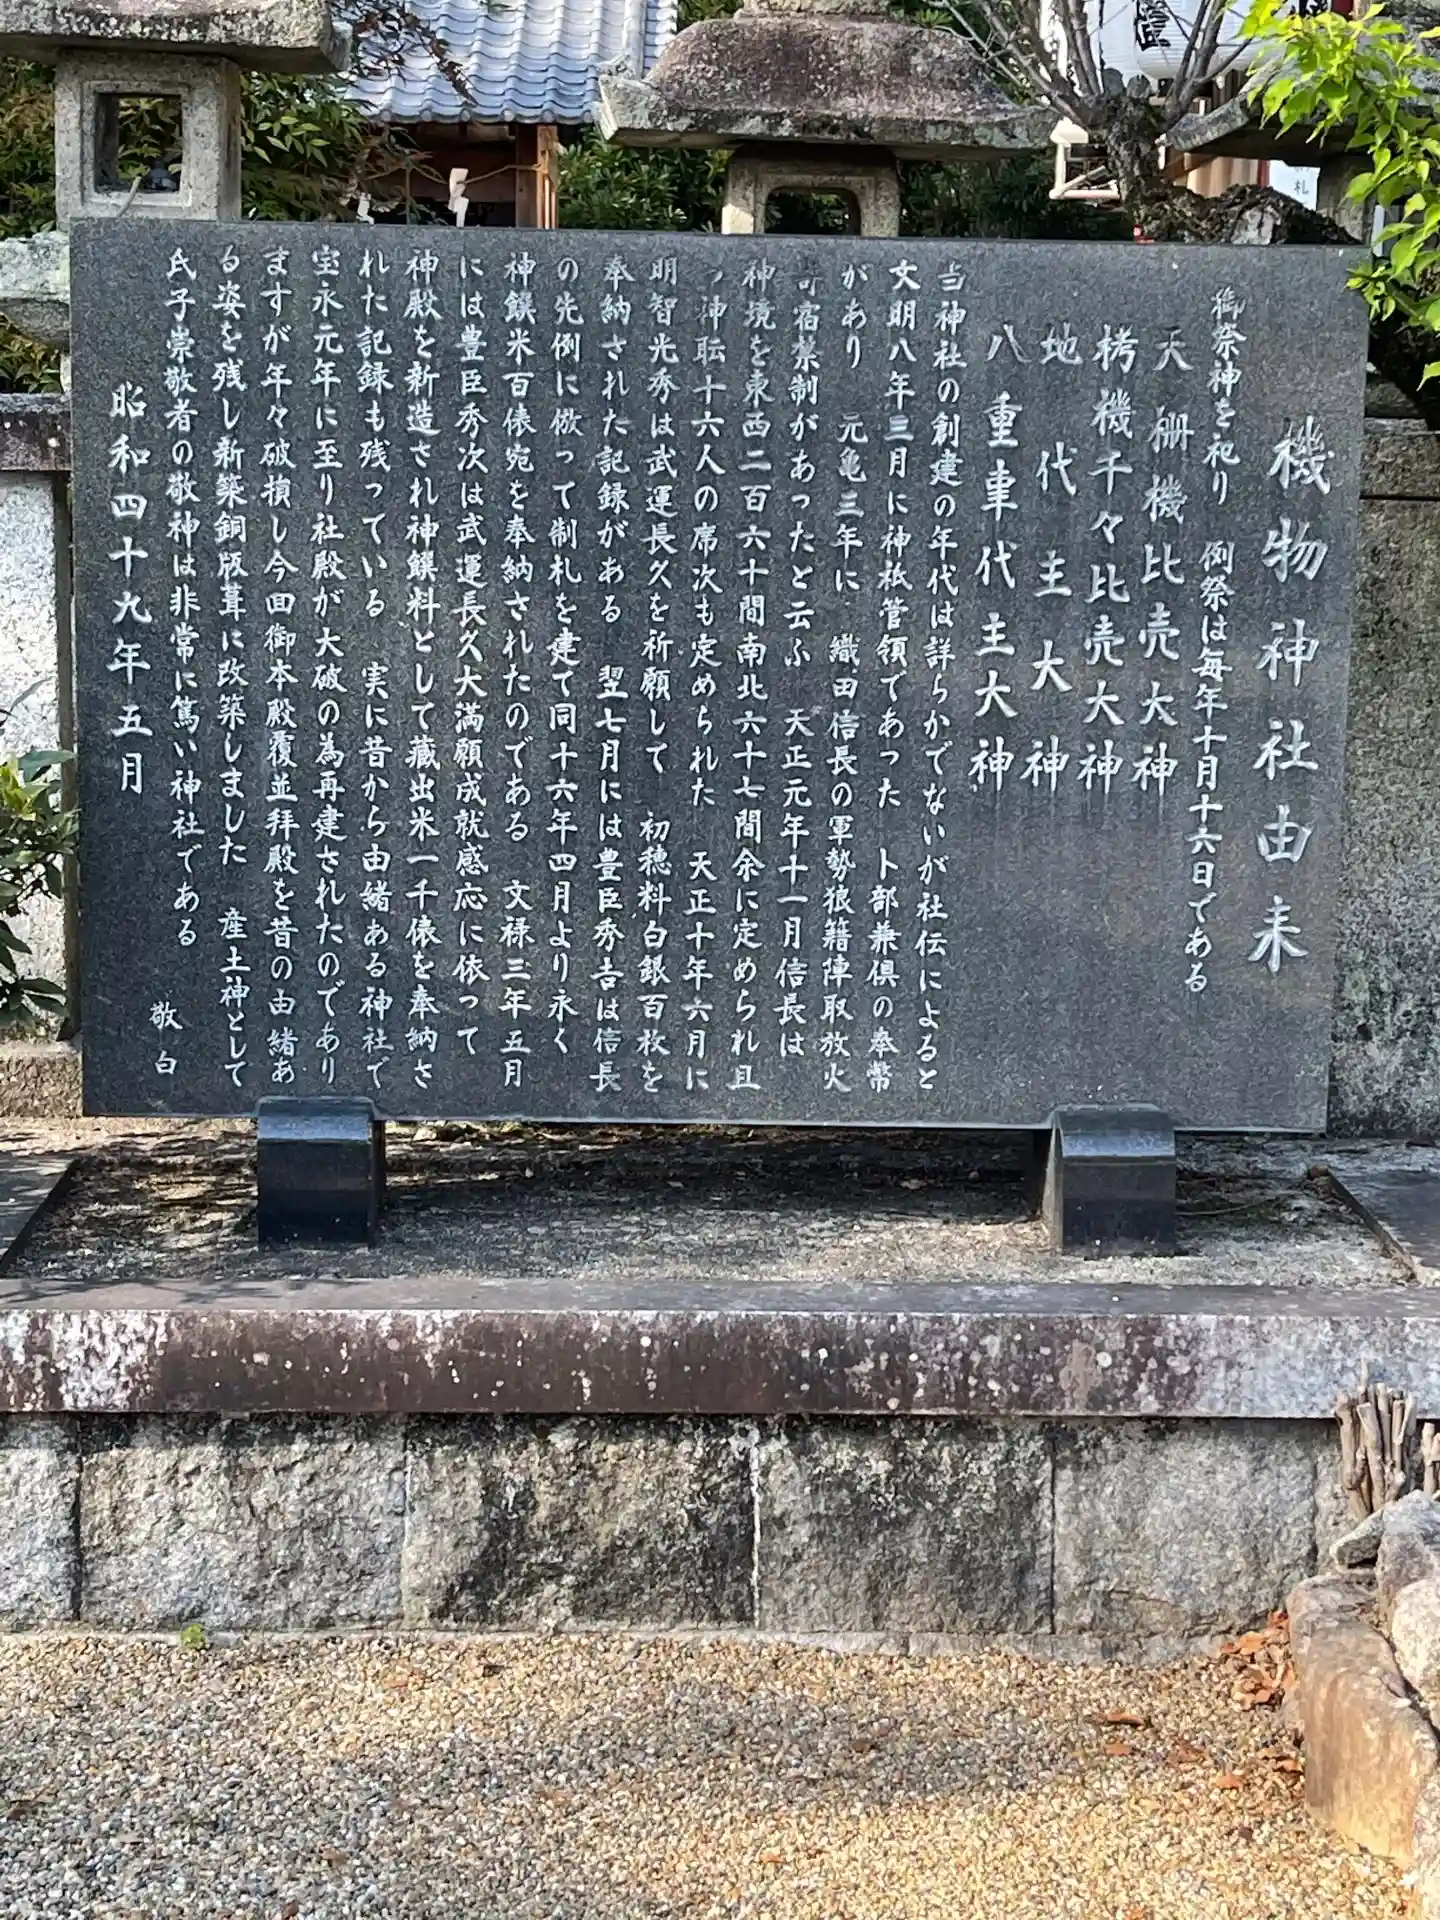 機物神社由来
御祭神を祀り　例祭は毎年十月十六日である
天棚機比売大神
栲機千々比売大神
地代主大神
八重事代主大神
当神社の創建の年代は詳らかでないが社伝によると
文明八年三月に神祇管領であった　卜部兼倶の奉幣
があり　元亀三年に　織田信長の軍勢狼籍陣取放火
寄宿禁制があったと云ふ　天正元年十一月信長は
神境を東西二百六十間南北六十七間余に定められ且
っ神転十六人の席次も定められた　天正十年六月に
明智光秀は武運長久を祈願して　初穂料白銀百枚を
奉納された記録がある　翌七月には豊臣秀吉は信長
の先例に倣って制札を建て同十六年四月より永く
神饌米百俵宛を奉納されたのである　文禄三年五月
には豊臣秀次は武運長久大満願成就感応に依って
神殿を新造され神饌料として蔵出米一千俵を奉納さ
れた記録も残っている　実に昔から由緒ある神社で
宝永元年に至り社殿が大破の為再建されたのであり
ますが年々破損し今回御本殿覆並拝殿を昔の由緒あ
る姿を残し新築銅版葺に改築しました　産土神として
氏子崇敬者の敬神は非常に篤い神社である
敬白
昭和四十九年五月
札